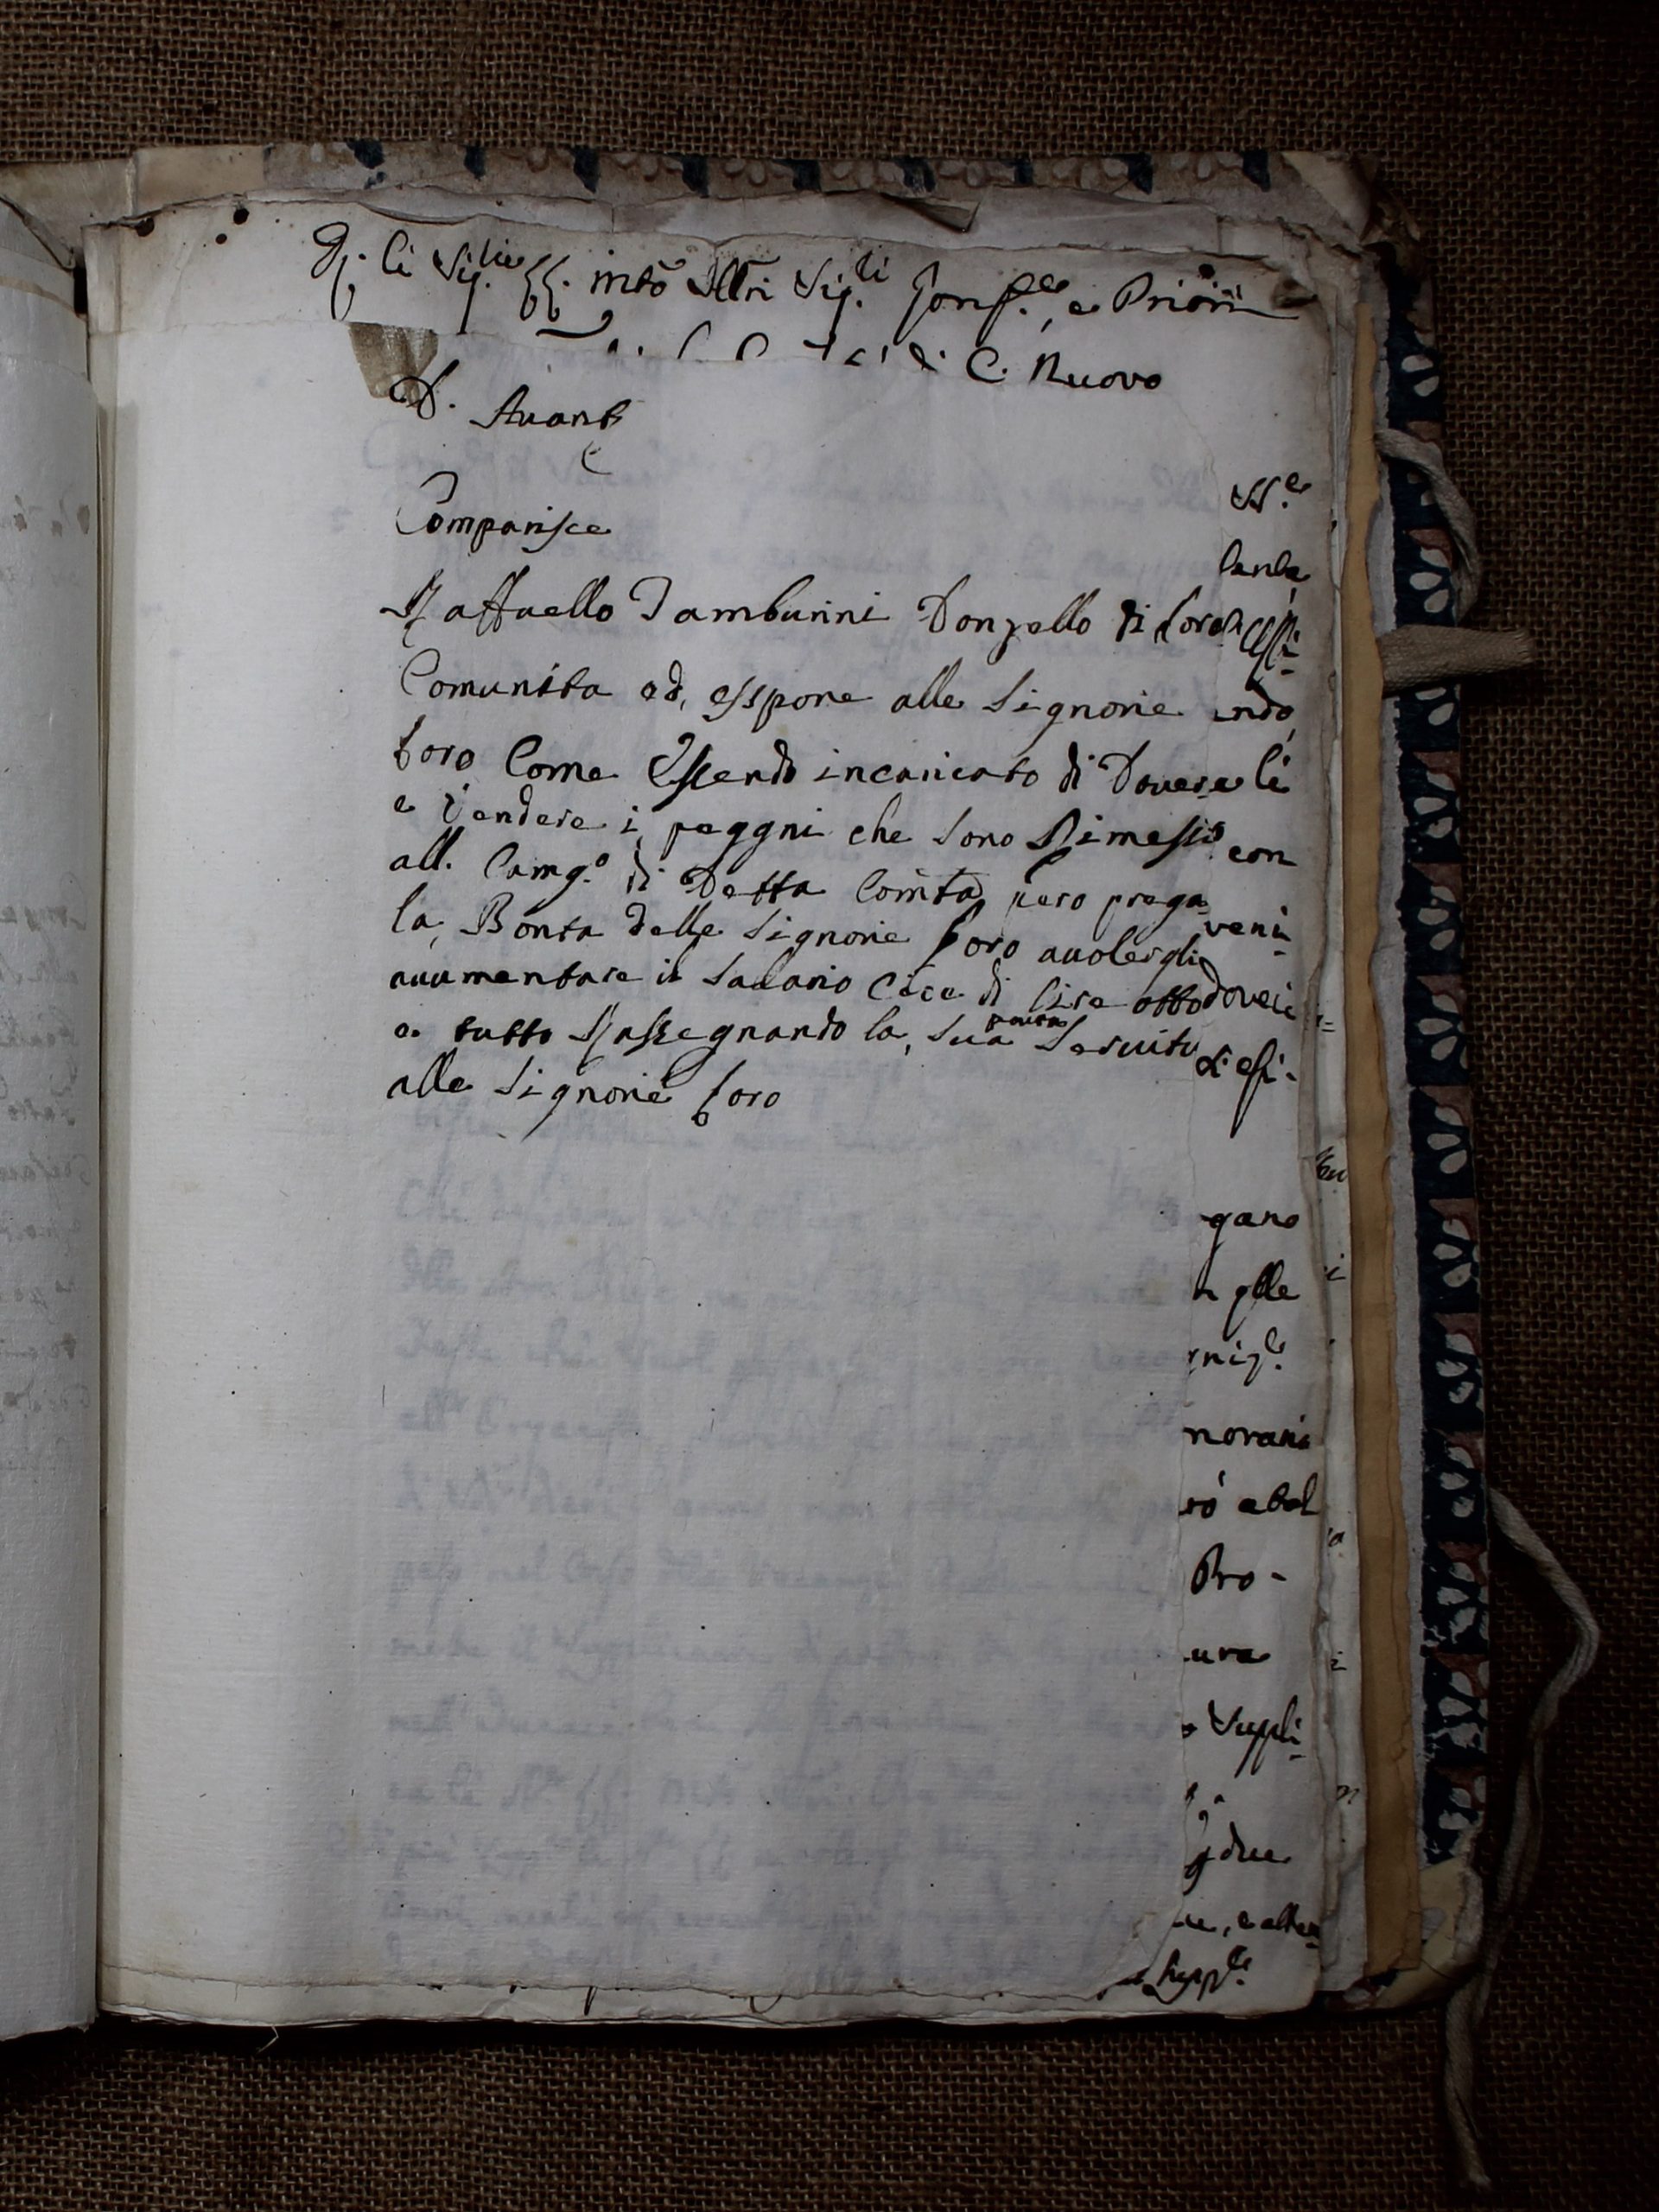 li Sig.rie SS. mto Illri Sig.li Gonf.re, e Priori
di C. Nuovo
D. Auant
Comparisce
Raffaello Tamburini Donzello di Loro
Comunita ed, esspone alle Signorie
Loro Come Essendo incaricato di Douere
e Vendere i, peggni che Sono Rimessi
all. Camg.o di Detta Comta pero prega
la, Bonta delle Signorie Loro auolergli
auumentare il Salario Cice di lire otto
e tutto Rassegnando la, Sua pouera Seruitu
alle Signorie Loro
SS.e
endo
li
con
veni-
dovei
di esi-
gano
n qlle
norani
Pro-
ura
Suppli-
due
ue, e atten-
Supp.te